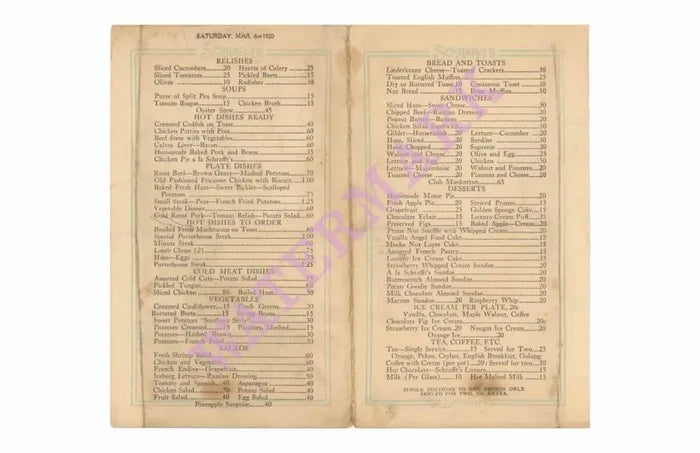 SATURDAY, MAR. 6—1920
SCHRAFFT'S
RELISHES
Sliced Cucumbers 20 Hearts of Celery 25
Sliced Tomatoes 25 Pickled Beets 15
Olives 10 Radishes 10
SOUPS
Puree of Split Pea Soup
Tomato Bisque 15 Chicken Broth 15
Oyster Stew 45
HOT DISHES READY
Creamed Codfish on Toast 40
Chicken Patties with Peas 60
Beef Stew with Vegetables 60
Calves Liver—Bacon 60
Homemade Baked Pork and Beans 35
Chicken Pie a la Schrafft's 60
PLATE DISHES
Roast Beef—Brown Gravy—Mashed Potatoes 70
Old Fashioned Fricassee Chicken with Biscuit 1.00
Baked Fresh Ham—Sweet Pickles—Scalloped
Potatoes 75
Small Steak—Peas—French Fried Potatoes 1.25
Vegetable Dinner 60
Cold Roast Pork—Tomato Relish—Potato Salad 60
HOT DISHES TO ORDER
Broiled Fresh Mushrooms on Toast
Special Porterhouse Steak
Minute Steak
Lamb Chops (2) 75
Ham—Eggs 75
Porterhouse Steak
COLD MEAT DISHES
Assorted Cold Cuts—Potato Salad
Pickled Tongue 60
Sliced Chicken 80 Boiled Ham 50
VEGETABLES
Creamed Cauliflower 15 Fresh Greens 20
Buttered Beets 15 String Beans 15
Sweet Potatoes "Southern Style" 30
Potatoes Creamed 15 Potatoes, Mashed 15
Potatoes—Hashed Brown 30
Potatoes—French Fried
SALADS
Fresh Shrimp Salad 60
Chicken and Vegetable 60
French Endive—Grapefruit 40
Iceberg Lettuce—Russian Dressing 50
Tomato and Spanish 40 Asparagus 40
Chicken Salad 70 Potato Salad 40
Fruit Salad 40 Egg Salad 40
Pineapple Surprise 40
SCHRAFFT'S
BREAD AND TOASTS
Liederkranz Cheese—Toasted Crackers 30
Toasted English Muffins 25
Dry or Buttered Toast 10 Cinnamon Toast 20
Nut Bread Bran Muffins 10
SANDWICHES
Sliced Ham—Swiss Cheese 30
Chipped Beef—Russian Dressing 20
Peanut Butter—Banana 20
Chicken Salad Sandwich 50
Giblet—Horseradish Lettuce—Cucumber 20
Ham, Sliced Sardine 30
Ham, Chopped Supreme 20
Walnut and Cheese Olive and Egg 25
Lettuce and Egg Chicken 50
Lettuce—Mayonnaise 20 Walnut and Pimento 25
Toasted Cheese 20 Pimento and Cheese 20
Club Manhattan 65
DESSERTS
Homemade Mince Pie 20
Fresh Apple Pie Stewed Prunes 15
Grapefruit 25 Golden Sponge Cake 15
Chocolate Eclair 15 Luxuro Cream Puff 35
Preserved Figs Baked Apple—Cream 20
Prune Nut Souffle with Whipped Cream 20
Vanilla Angel Food Cake 15
Mocha Nut Layer Cake 15
Assorted French Pastry 15
Luxuro Ice Cream Cake 35
Strawberry Whipped Cream Sundae 30
A la Schrafft's Sundae 30
Butterscotch Almond Sundae 30
Pecan Goodie Sundae 30
Milk Chocolate Almond Sundae 20
Marron Sundae Raspberry Whip 20
ICE CREAM PER PLATE, 20c
Vanilla, Chocolate, Maple Walnut, Coffee
Chocolate Fig Ice Cream 20c
Strawberry Ice Cream 20 Nougat Ice Cream 20
Orange Ice 20
TEA, COFFEE, ETC.
Tea—Single Service 15 Served for Two 25
Orange, Pekoe, Ceylon, English Breakfast, Oolong
Coffee with Cream (per pot) 20; Served for two 30
Hot Chocolate—Schrafft's Luxuro 15
Milk (Per Glass) 10 Hot Malted Milk 15
SINGLE PORTIONS TO ONE PERSON ONLY.
SERVED FOR TWO, 10c EXTRA.
WATERMARK